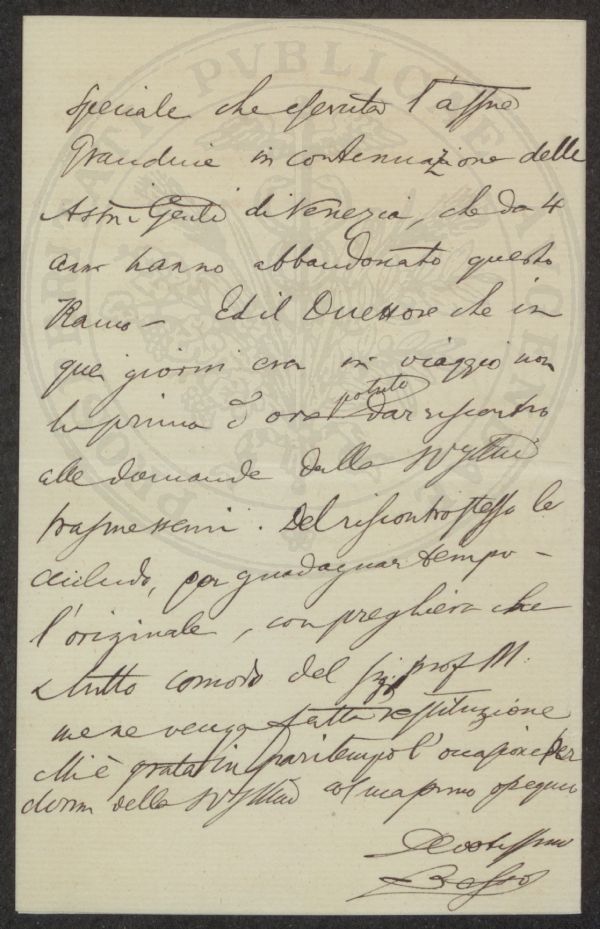 speciale che esercita l'affare
Grandine in continuazione delle
Assni Genli di Venezia, che da 4
anni hanno abbandonato questo
Ramo — Ed il Direttore che in
quei giorni era in viaggio non
ha prima d'ora potuto dar riscontro
alle domande dalla
trasmessemi. Del riscontro stesso le
accludo, per guadagnar tempo —
l'originale, con preghiera che
a tutto comodo del prof M.
me ne venga fatta restituzione
Mi è grata in pari tempo l'occasione per
dirmi della col massimo ossequio
Devotissimo
Besso